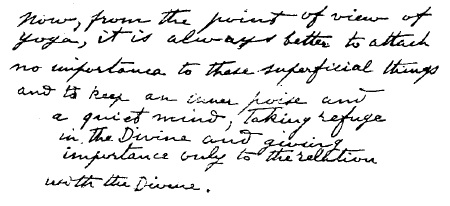 Now, from the point of view of
Yoga, it is always better to attach
no importance to these superficial things
and to keep an inner poise and
a quiet mind, taking refuge
in the Divine and giving
importance only to the relation
with the Divine.